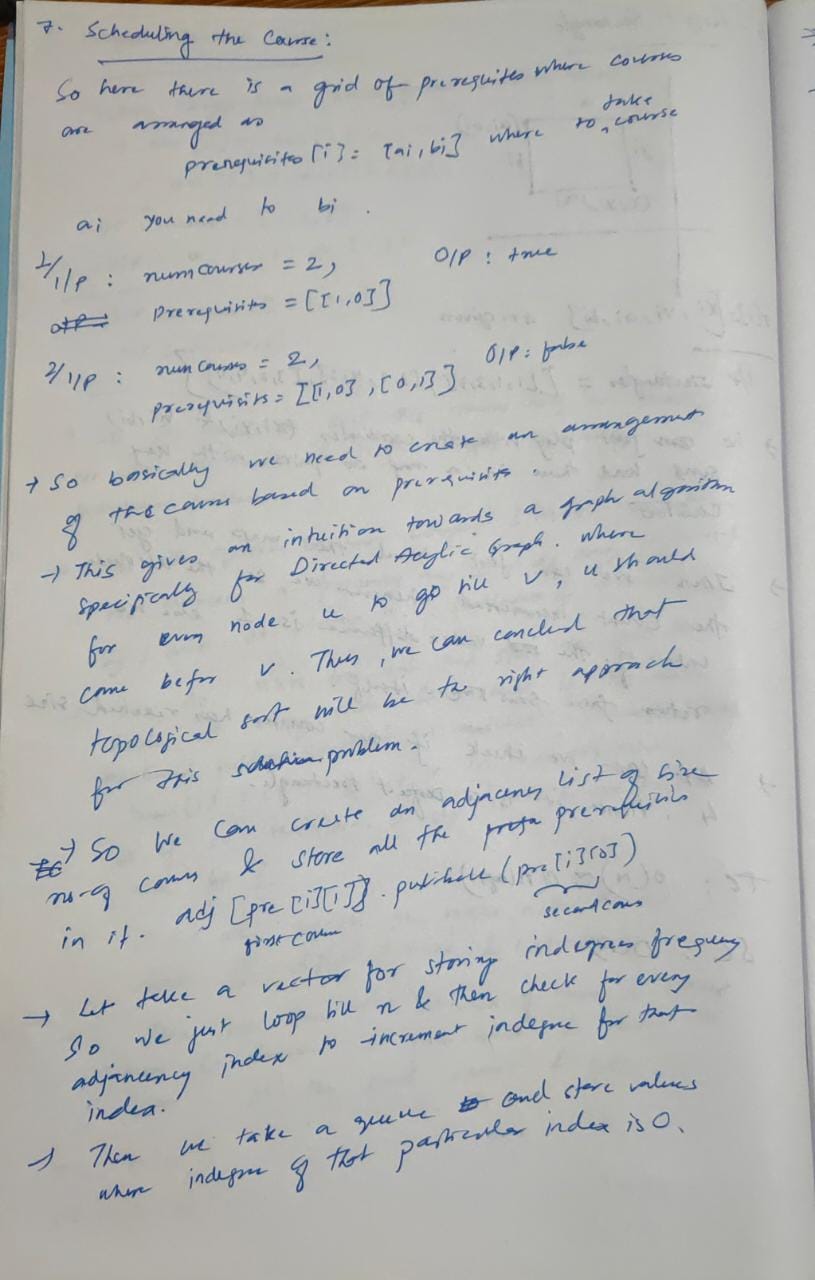 7. Scheduling the Course:
So here there is a grid of prerequites where courses
are arranged as take
prerequisites [i] = [ai, bi] where to, course
ai you need to bi.
1/ I/P : numcourses = 2, O/P : true
prerequisites = [[1,0]]
2/ I/P : numcourses = 2, O/P : false
prerequisits = [[1,0], [0,1]]
→ So basically we need to create an arrangement
of the courses based on prerequisits.
→ This gives an intuition towards a graph algorithm
specifically for Directed Acylic Graph. where
for every node u to go till v, u should
come before v. Thus, we can conclued that
topological sort will be the right approach
for this problem.
→ So we can create an adjacency list of size
no-of courses & store all the prerequisits
in it. adj [pre[i][1]]. pushback (pre[i][0])
first course second cours
→ Let take a vector for storing indegrees frequency
so we just loop till n & then check for every
adjancency index to increment indegree for that
index.
→ Then we take a queue and store values
where indegree of that particular index is 0.